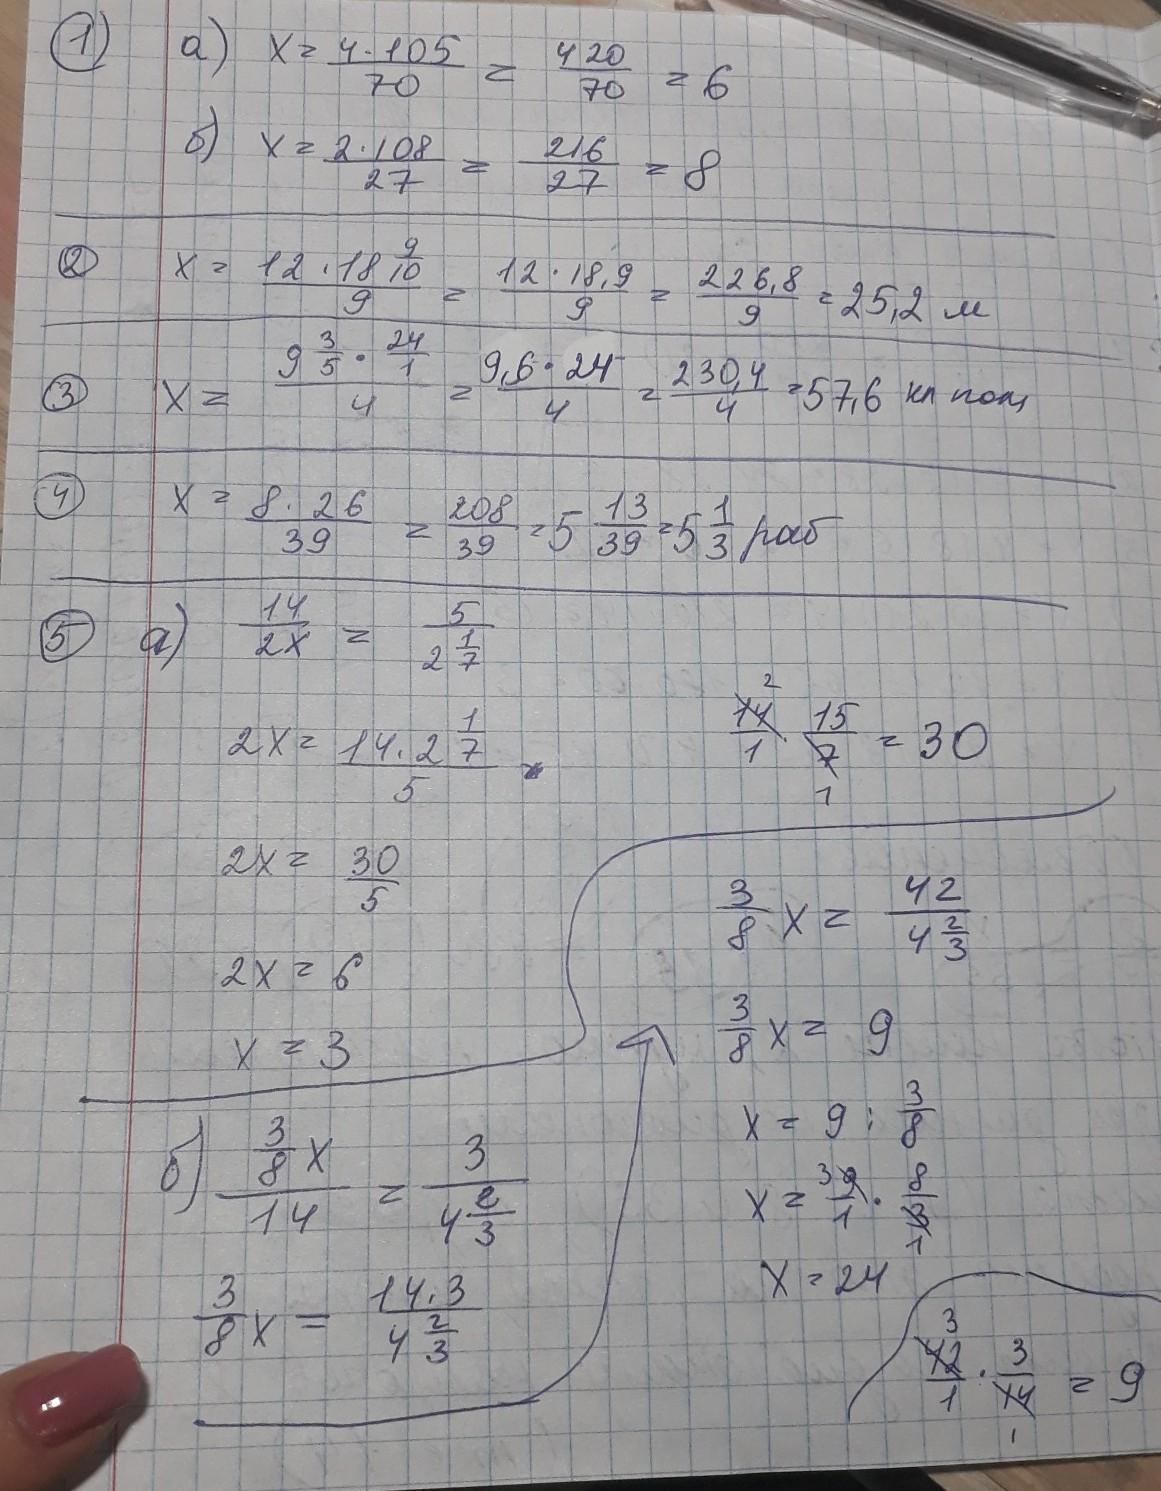 ① а) x = 4·105/70 = 420/70 = 6
б) x = 2·108/27 = 216/27 = 8
② x = 12·18 9/10 / 9 = 12·18,9/9 = 226,8/9 = 25,2 м
③ x = 9 3/5 · 24/1 / 4 = 9,6·24/4 = 230,4/4 = 57,6 кл пощ
④ x = 8·26/39 = 208/39 = 5 13/39 = 5 1/3 раб
⑤ а) 14/2x = 5 / 2 1/7
2x = 14·2 1/7 / 5
14/1 · 15/7 = 30
2 1
2x = 30/5
2x = 6
x = 3
б) 3/8 x / 14 = 3 / 4 2/3
3/8 x = 14·3 / 4 2/3
3/8 x = 42 / 4 2/3
3/8 x = 9
x = 9 : 3/8
x = 9/1 · 8/3
3 1
x = 24
42/1 · 3/14 = 9
3 1